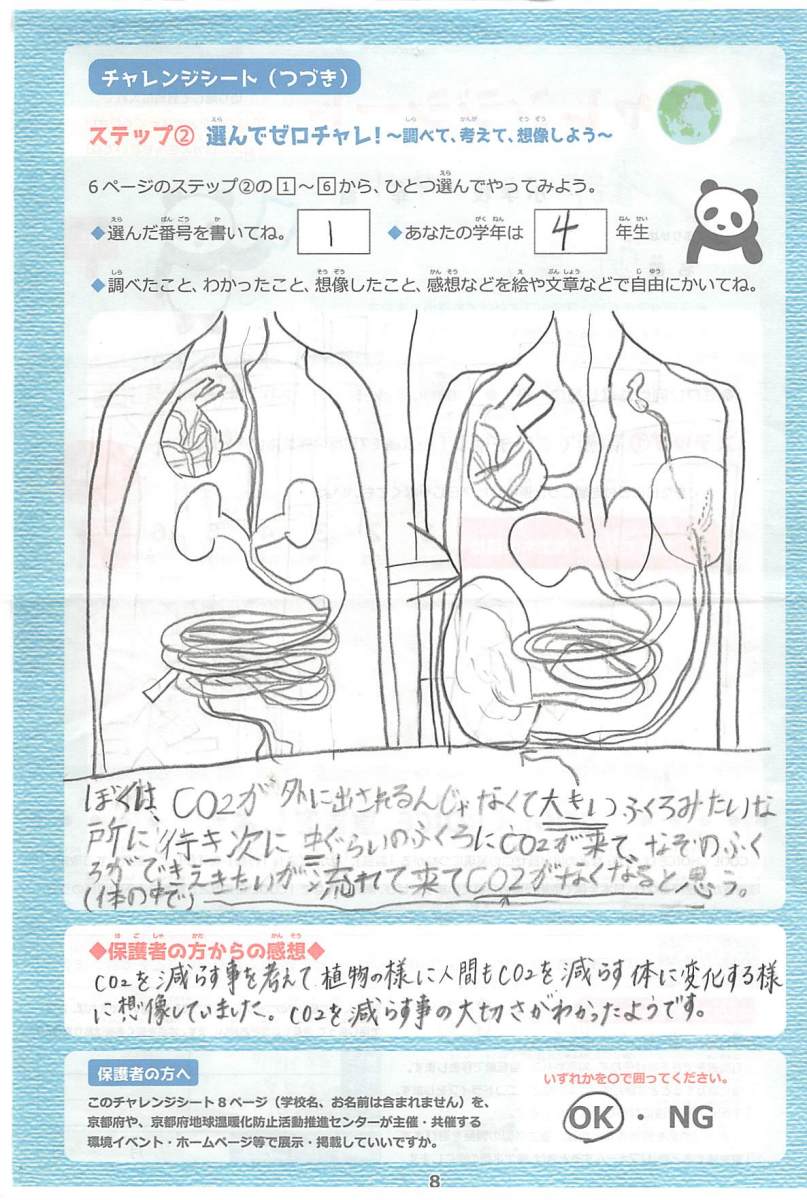 チャレンジシート（つづき）
ステップ② 選んでゼロチャレ！～調べて、考えて、想像しよう～
6ページのステップ②の1～6から、ひとつ選んでやってみよう。
◆選んだ番号を書いてね。 1 ◆あなたの学年は 4 年生
◆調べたこと、わかったこと、想像したこと、感想などを絵や文章などで自由にかいてね。
ぼくは、CO2が外に出されるんじゃなくて大きいふくろみたいな
所に、行き次に中ぐらいのふくろにCO2が来て、なぞのふく
ろができえきたいが流れて来てCO2がなくなると思う。
(体の中で)
◆保護者の方からの感想◆
CO2を減らす事を考えて植物の様に人間もCO2を減らす体に変化する様
に想像していました。CO2を減らす事の大切さがわかったようです。
保護者の方へ
このチャレンジシート8ページ（学校名、お名前は含まれません）を、
京都府や、京都府地球温暖化防止活動推進センターが主催・共催する
環境イベント・ホームページ等で展示・掲載していいですか。
いずれかを○で囲ってください。
OK ・ NG
8